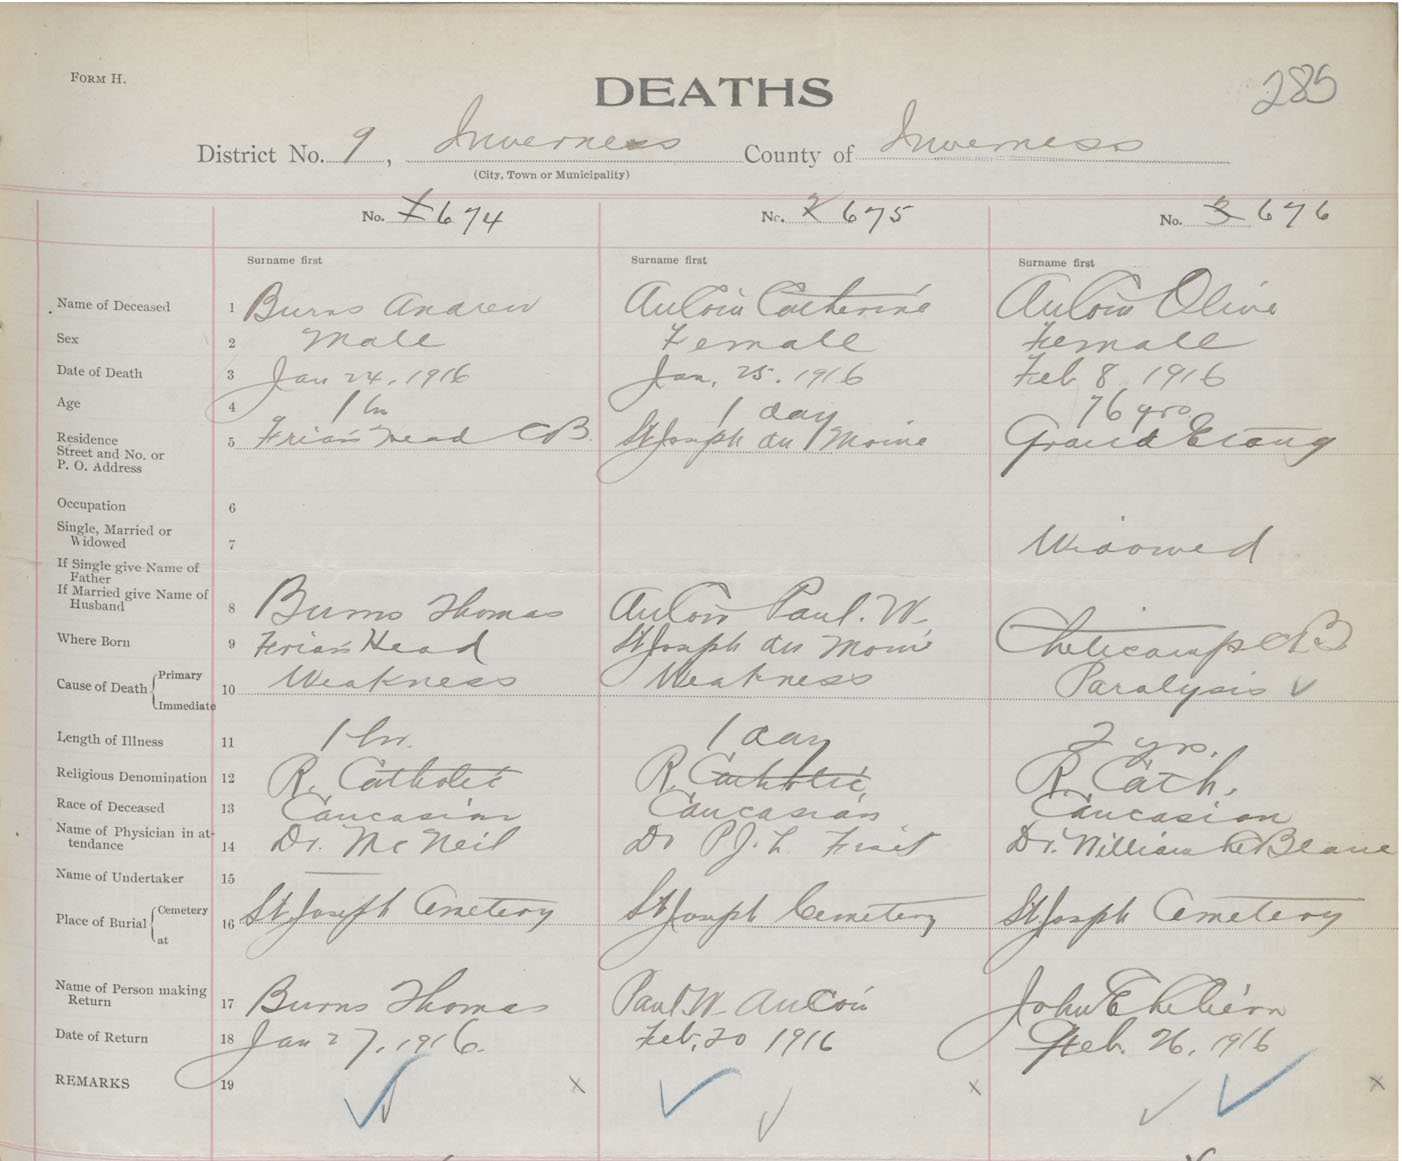 FORM H.
DEATHS
285
District No. 9, Inverness County of Inverness
(City, Town or Municipality)
No. 1 674 No. 2 675 No. 3 676
Surname first Surname first Surname first
Name of Deceased 1 Burns Andrew AuCoin Catherine AuCoin Olive
Sex 2 Male Female Female
Date of Death 3 Jan 24, 1916 Jan, 25, 1916 Feb 8 1916
Age 4 1 hr 1 day 76 yrs
Residence
Street and No. or
P. O. Address 5 Friar's Head CB. St Joseph du Moine Grand Etang
Occupation 6
Single, Married or
Widowed 7 Widowed
If Single give Name of
Father
If Married give Name of
Husband 8 Burns Thomas AuCoin Paul. W.
Where Born 9 Friar's Head St Joseph du Moine Cheticamp CB
Cause of Death { Primary Immediate 10 Weakness Weakness Paralysis
Length of Illness 11 1 hr. 1 day 2 yrs.
Religious Denomination 12 R. Catholic R. Catholic R. Cath.
Race of Deceased 13 Caucasian Caucasian Caucasian
Name of Physician in at-
tendance 14 Dr. McNeil Dr P.J.L. Dr. William
Name of Undertaker 15
Place of Burial { Cemetery at 16 St Joseph Cemetery St Joseph Cemetery St Joseph Cemetery
Name of Person making
Return 17 Burns Thomas Paul W. AuCoin John E
Date of Return 18 Jan 27, 1916. Feb. 20 1916 Feb. 26, 1916
REMARKS 19 x x x